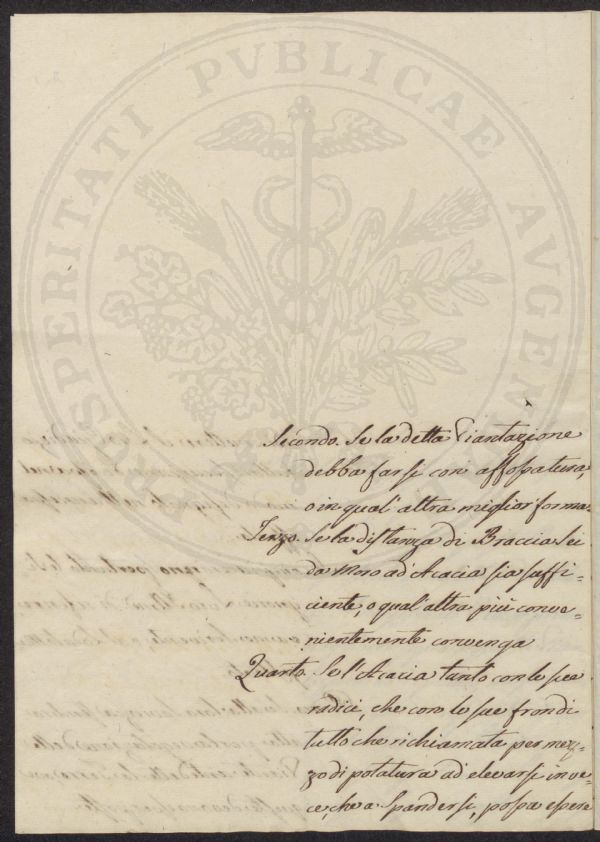 PROSPERITATI PVBLICAE AVGENDAE
Secondo. Se la detta Piantazione
debba farsi con affossatura,
o in qual' altra miglior forma.
Terzo. Se la distanza di Braccia Sei
da Moro ad' Acacia sia suffi=
ciente, o qual' altra più conve=
nientemente convenga
Quarto. Se l'Acacia tanto con le sue
radici, che con le sue frondi
tutto che richiamata per mez=
zo di potatura ad elevarsi inve=
ce, che a spandersi, possa essere